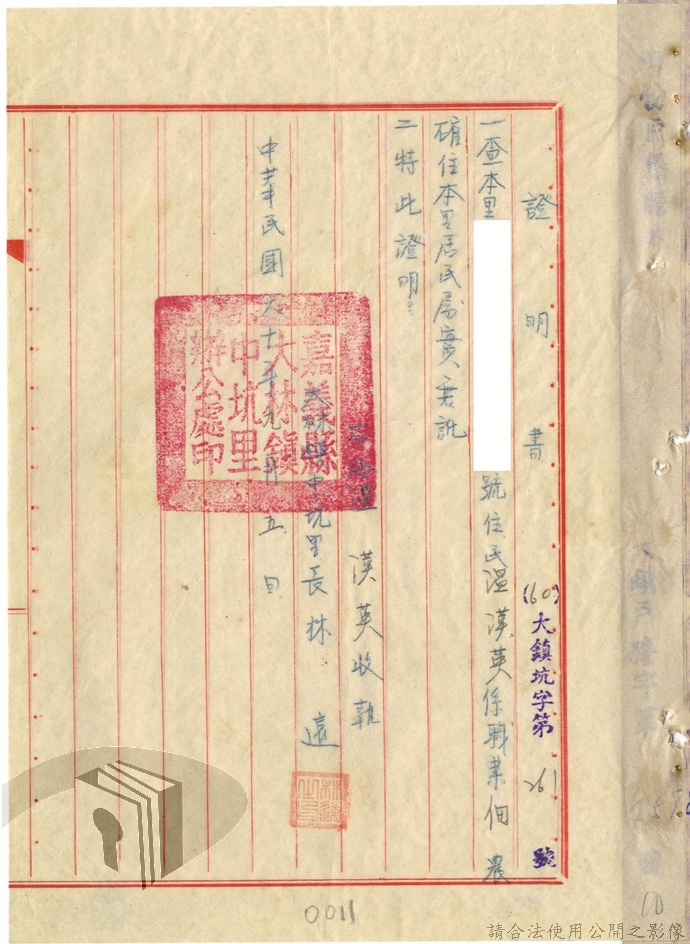 證明書
(60)大鎮坑字第261號
一查本里 號住民温漢英係職業佃農
確住本里居民屬實無訛
二特此證明
漢英收執
大林鎮中坑里長林遠
中華民國六十年九月五日
嘉義縣
大林鎮
中坑里
辦公處印
0011
10
請合法使用公開之影像